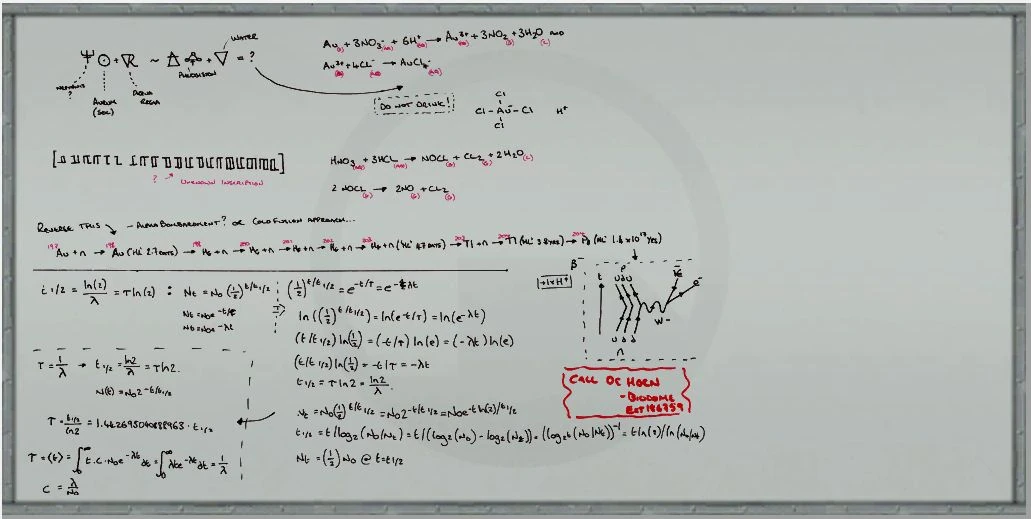 WATER
= ?
PRECISION
AURUM (SOL)
AQUA REGIA
Au(s) + 3NO3-(aq) + 6H+(aq) → Au3+(aq) + 3NO2(g) + 3H2O(l) AND
Au3+(aq) + 4Cl-(aq) → AuCl4-(aq)
DO NOT DRINK!
Cl
Cl - Au - Cl H+
Cl
? → UNKNOWN INSCRIPTION
HNO3(aq) + 3HCL(aq) → NOCL(g) + CL2(g) + 2H2O(l)
2 NOCL(g) → 2NO(g) + CL2(g)
REVERSE THIS - ALPHA BOMBARDMENT? OR COLD FUSION APPROACH...
197Au + n → 198Au (HL: 2.7 DAYS) → 198Hg + n → 200Hg + n → 201Hg + n → 202Hg + n → 203Hg + n (HL: 47 DAYS) → 203Tl + n → 204Tl (HL: 3.8 YRS) → 204Pb (HL: 1.4 x 10^17 YRS)
t1/2 = ln(2)/λ = τ ln(2) : Nt = N0 (1/2)^t/t1/2
Nt = N0e^-t/τ
Nt = N0e^-λt
(1/2)^t/t1/2 = e^-t/τ = e^-λt
ln((1/2)^t/t1/2) = ln(e^-t/τ) = ln(e^-λt)
(t/t1/2) ln(1/2) = (-t/τ) ln(e) = (-λt) ln(e)
(t/t1/2) ln(1/2) = -t/τ = -λt
t1/2 = τ ln2 = ln2/λ.
τ = 1/λ → t1/2 = ln2/λ = τ ln2.
N(t) = N0 2^-t/t1/2
τ = t1/2/ln2 = 1.442695040888963 · t1/2
τ = ⟨t⟩ = ∫0^∞ t.c.N0e^-λt dt = ∫0^∞ λte^-λt dt = 1/λ
C = λ/N0
Nt = N0(1/2)^t/t1/2 = N0 2^-t/t1/2 = N0e^-t ln(2)/t1/2
t1/2 = t/log2(N0/Nt) = t/(log2(N0) - log2(Nt)) = (log2t(N0/Nt))^-1 = t ln(2)/ln(N0/Nt)
Nt = (1/2) N0 @ t = t1/2
β-
t
P
u d u
νe
e-
W-
u d d
n
CALL DR HORN
- BIODOME
EXT 186759